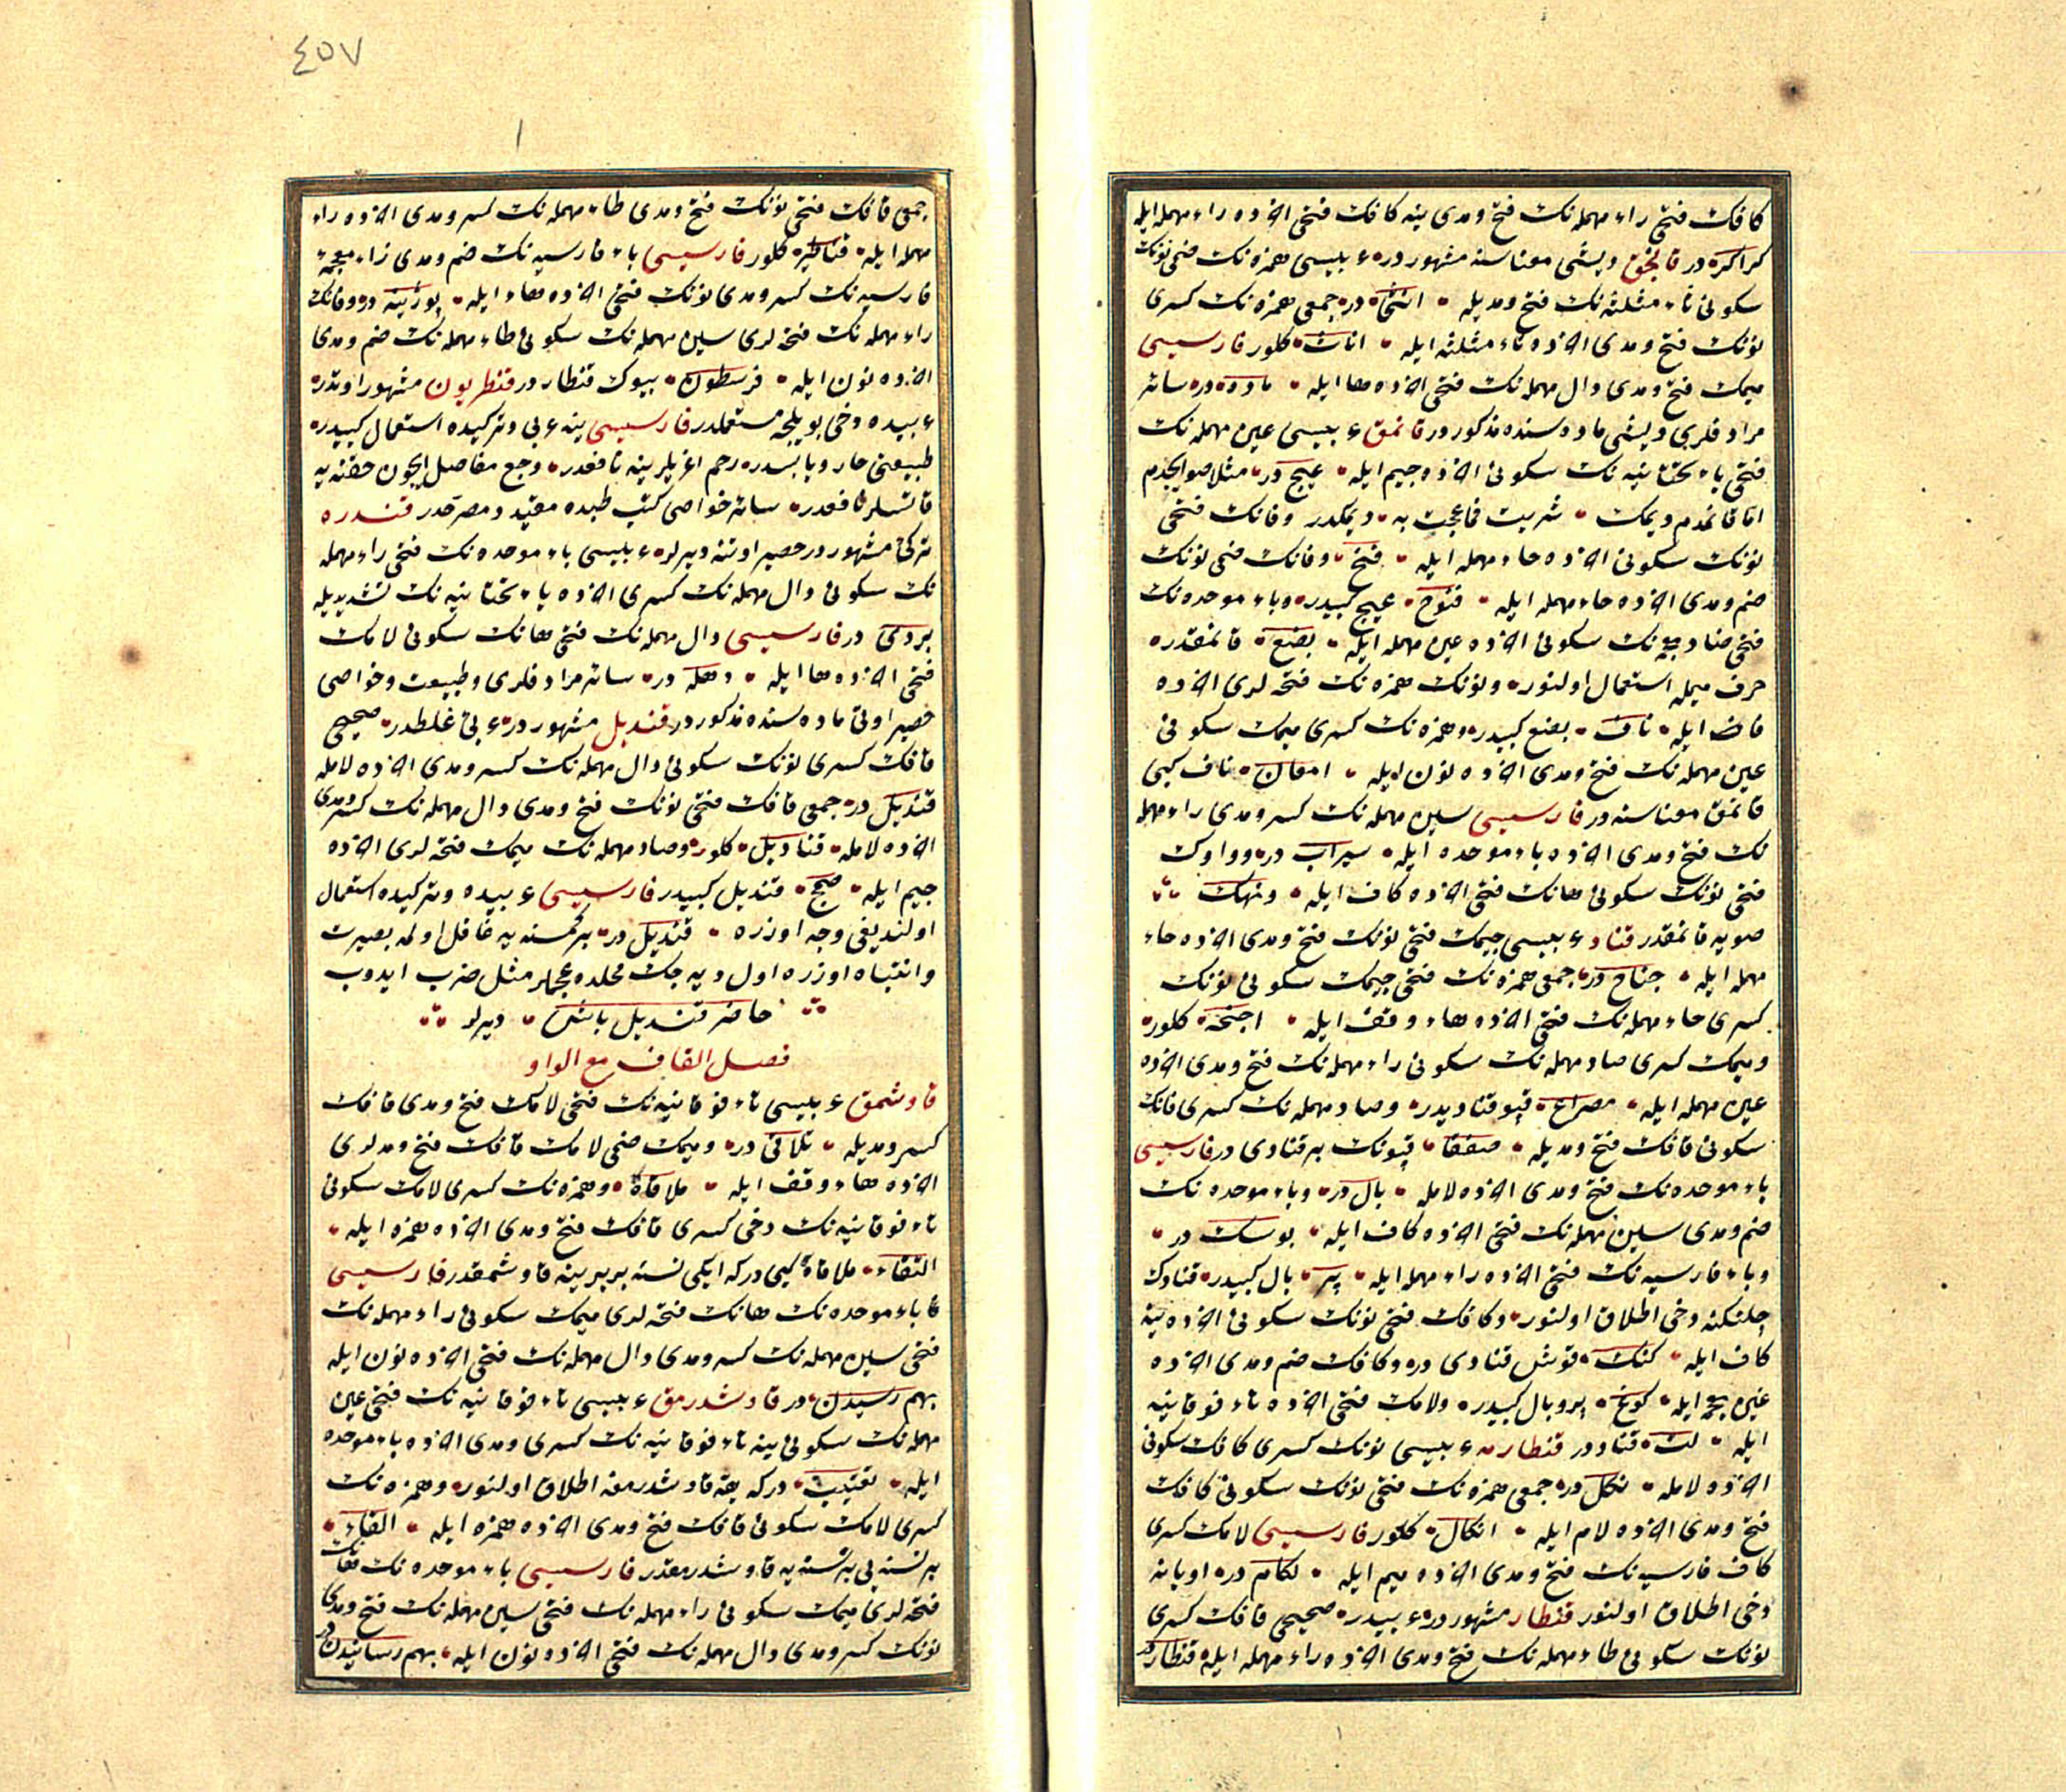 كافك فتحی راء مهمله نك فتح ومدی ینه كافك فتحی اخرده راء مهمله ایله
كراكره در قانجق دیشی معناسنه مشهوردر عربیسی همزه نك ضمی نونك
سكونی ثاء مثلثه نك فتح ومدیله انثی در جمعی همزه نك كسری
نونك فتح ومدی اخرده ثاء مثلثه ایله اناث كلور فارسیسی
میمك فتح ومدی دال مهمله نك فتحی اخرده ها ایله ماده در سائر
مرادفلری دیشی ماده سنده مذكوردر قانمق عربیسی عین مهمله نك
فتحی یاء تحتانیه نك سكونی اخرده جیم ایله عیج در مثلا صو ایچدم
اما قانمدم دیمك شربت فماعجت به دیمكدر وفانك فتحی
نونك سكونی اخرده حاء مهمله ایله فنح وفانك ضمی نونك
ضم ومدی اخرده حاء مهمله ایله فنوح عیج كبیدر وباء موحده نك
فتحی ضاد معجمه نك سكونی اخرده عین مهمله ایله بضع قانمقدر
حرف میمله استعمال اولنور ونونك همزه نك فتحه لری اخرده
فاء ایله نأف بضع كبیدر وهمزه نك كسری میمك سكونی
عین مهمله نك فتح ومدی اخرده نون ایله امعان نأف كبی
قانمق معناسنه در فارسیسی سین مهمله نك كسر ومدی راء مهمله
نك فتح ومدی اخرده باء موحده ایله سیراب در وواوك
فتحی نونك سكونی هانك فتحی اخرده كاف ایله ونهك
صویه قانمقدر قناد عربیسی جیمك فتحی نونك فتح ومدی اخرده حاء
مهمله ایله جناح در جمعی همزه نك فتحی جیمك سكونی نونك
كسری حاء مهمله نك فتحی اخرده هاء وقف ایله اجنحة كلور
ومیمك كسری صاد مهمله نك سكونی راء مهمله نك فتح ومدی اخرده
عین مهمله ایله مصراع قپو قنادیدر وصاد مهمله نك كسری فانك
سكونی قافك فتح ومدیله صفقا قپونك بر قنادی در فارسیسی
باء موحده نك فتح ومدی اخرده لامله بال در وباء موحده نك
ضم ومدی سین مهمله نك فتحی اخرده كاف ایله بوسك در
وباء فارسیه نك فتحی اخرده راء مهمله ایله پر بال كبیدر قنادك
چلنكنه دخی اطلاق اولنور وكافك فتحی نونك سكونی اخرده ینه
كاف ایله كنك قوشل قنادی در وكافك ضم ومدی اخرده
غین معجمه ایله كوغ پر وبال كبیدر ولامك فتحی اخرده تاء فوقانیه
ایله لت قناددر قنطارمه عربیسی نونك كسری كافك سكونی
اخرده لامله نكل در جمعی همزه نك فتحی نونك سكونی كافك
فتح ومدی اخرده لام ایله انكال كلور فارسیسی لامك كسری
كاف فارسیه نك فتح ومدی اخرده میم ایله لكام در اویانه
دخی اطلاق اولنور قنطار مشهوردر عربیدر صحیحی قافك كسری
نونك سكونی طاء مهمله نك فتح ومدی اخرده راء مهمله ایله قنطار در
٤٥٧
جمعی قافك فتحی نونك فتح ومدی طاء مهمله نك كسر ومدی اخرده راء
مهمله ایله قناطیر كلور فارسیسی باء فارسیه نك ضم ومدی زاء معجمه
فارسیه نك كسر ومدی نونك فتحی اخرده هاء ایله پوژینه در وفانك
راء مهمله نك فتحه لری سین مهمله نك سكونی طاء مهمله نك ضم ومدی
اخرده نون ایله فرسطون بیوك قنطاردر قنطریون مشهور اوتدر
عربیده دخی بویله جه مستعملدر فارسیسی ینه عربی وتركیده استعمال كبیدر
طبیعتی حار ویابسدر رحم اغریلرینه نافعدر وجع مفاصل ایچون حقنه یه
قاتسلر نافعدر سائر خواصی كتب طبده مقید ومصرحدر قندره
تركی مشهوردر حصیر اوتنه دیرلر عربیسی باء موحده نك فتحی راء مهمله
نك سكونی دال مهمله نك كسری اخرده یاء تحتانیه نك تشدیدیله
بردی در فارسیسی دال مهمله نك فتحی هانك سكونی لامك
فتحی اخرده ها ایله دهله در سائر مرادفلری وطبیعت وخواصی
حصیر اوتی ماده سنده مذكوردر قندیل مشهوردر عربی غلطدر صحیحی
قافك كسری نونك سكونی دال مهمله نك كسر ومدی اخرده لامله
قندیل در جمعی قافك فتحی نونك فتح ومدی دال مهمله نك كسر ومدی
اخرده لامله قنادیل كلور وصاد مهمله نك میمك فتحه لری اخرده
جیم ایله صمج قندیل كبیدر فارسیسی عربیده وتركیده استعمال
اولندیغی وجه اوزره قندیل در بر كمسنه یه غافل اولمه بصیرت
وانتباه اوزره اول دیه جك محلده عجملر مثل ضرب ایدوب
حاضر قندیل باش دیرلر
فصل القاف مع الواو
قاوشمق عربیسی تاء فوقانیه نك فتحی لامك فتح ومدی قافك
كسر ومدیله تلاقی در ومیمك ضمی لامك قافك فتح ومدلری
اخرده هاء وقف ایله ملاقاة وهمزه نك كسری لامك سكونی
تاء فوقانیه نك دخی كسری قافك فتح ومدی اخرده همزه ایله
التقاء ملاقاة كبی دركه ایكی نسنه بربرینه قاوشمقدر فارسیسی
باء موحده نك هانك فتحه لری میمك سكونی راء مهمله نك
فتحی سین مهمله نك كسر ومدی دال مهمله نك فتحی اخرده نون ایله
بهم رسیدن در قاوشدرمق عربیسی تاء فوقانیه نك فتحی عین
مهمله نك سكونی ینه تاء فوقانیه نك كسری ومدی اخرده باء موحده
ایله تعتیب دركه بقه قاوشدرمغه اطلاق اولنور وهمزه نك
كسری لامك سكونی قافك فتح ومدی اخرده همزه ایله القاء
بر نسنه یی بر نسنه یه قاوشدرمقدر فارسیسی باء موحده نك هانك
فتحه لری میمك سكونی راء مهمله نك فتحی سین مهمله نك فتح ومدی
نونك كسر ومدی دال مهمله نك فتحی اخرده نون ایله بهم رسانیدن در